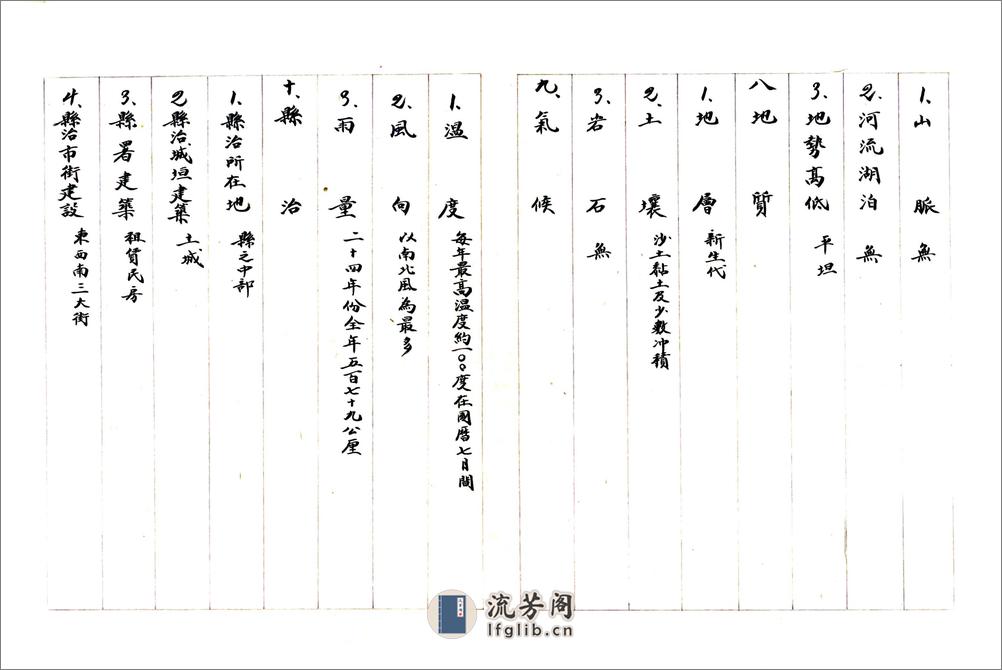 1.山脈 無
2.河流湖泊 無
3.地勢高低 平坦
八地質
1.地層 新生代
2.土壤 沙土黏土及少数冲積
3.岩石 無
九、氣候
1.温度 每年最高温度約一〇〇度在國曆七月間
2.風向 以南北風為最多
3.雨量 二十四年份全年五百七十九公厘
十、縣治
1.縣治所在地 縣之中部
2.縣治城垣建築 土城
3.縣署建築 租賃民房
4.縣治市街建設 東西南三大街
流芳阁
lfglib.cn